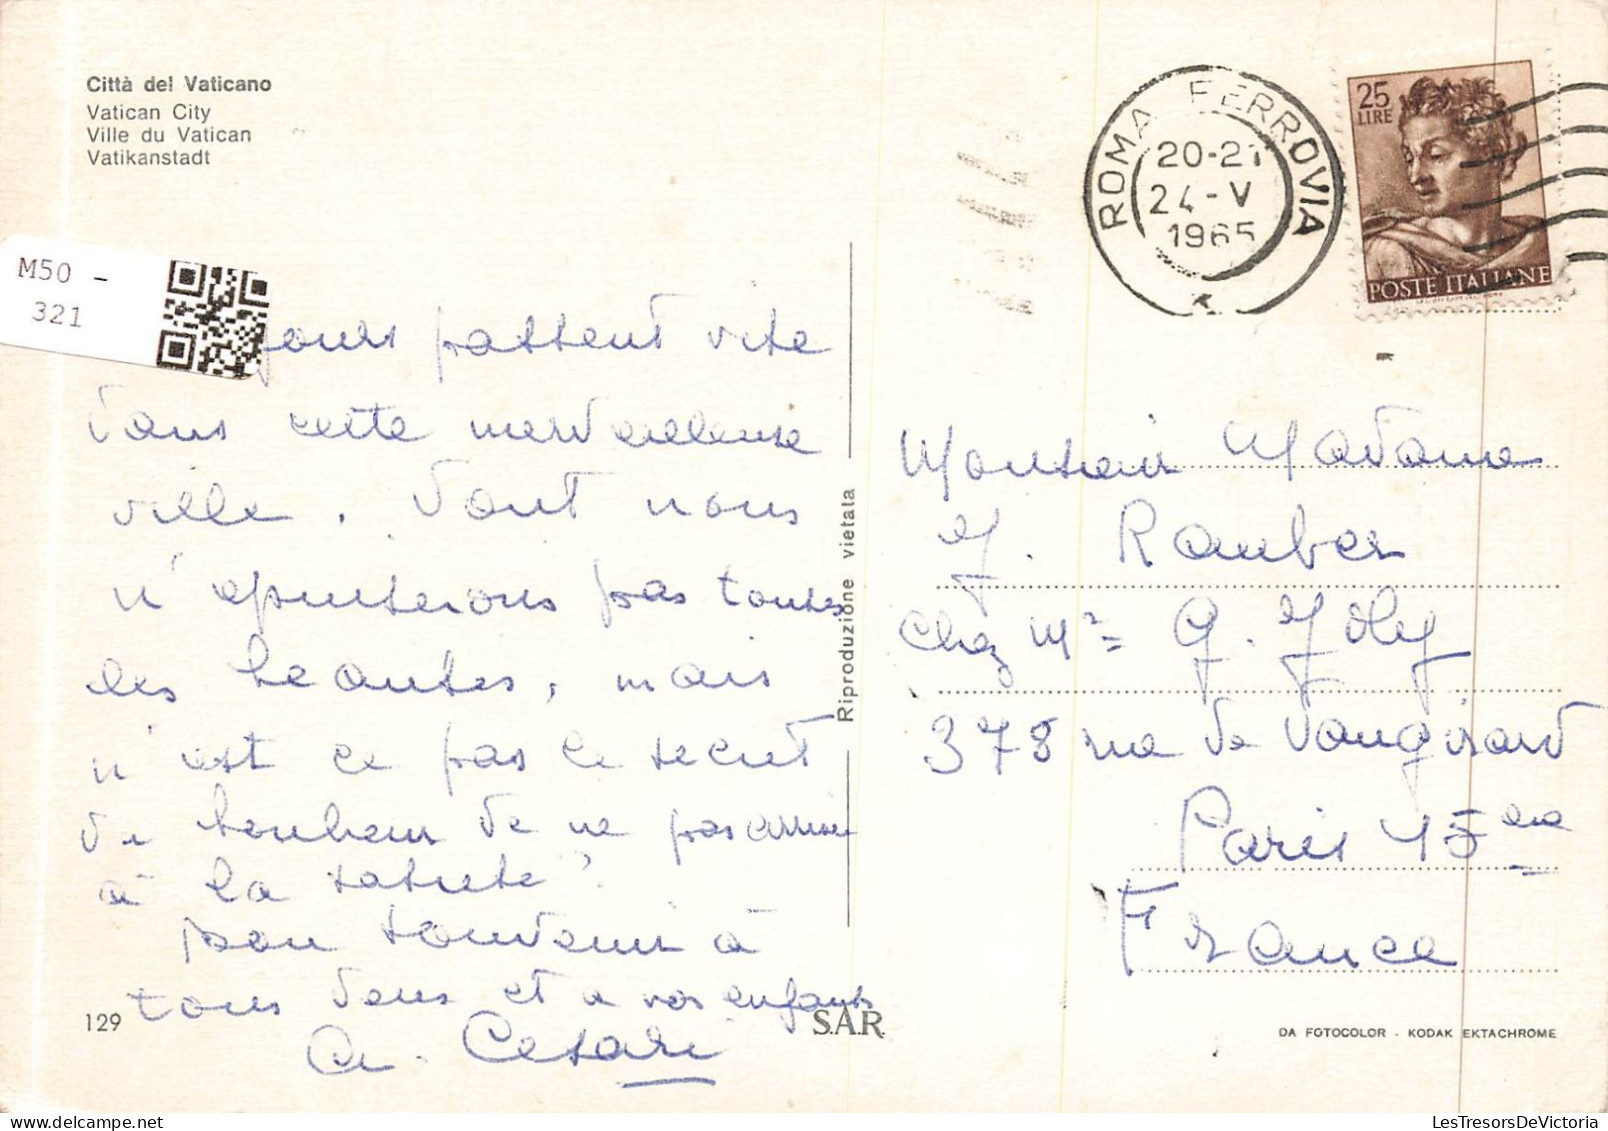 Città del Vaticano
Vatican City
Ville du Vatican
Vatikanstadt
M50 -
321
ROMA FERROVIA
20-21
24-V
1965
25
LIRE
POSTE ITALIANE
jours passent vite
dans cette merveilleuse
ville. Dont nous
n'épuiserons pas toutes
les beautés, mais
n'est ce pas le secret
du bonheur de ne pas arriver
à la satiété?
bon souvenir à
tous deux et a vos enfants
A. Cesari
Riproduzione vietata
Monsieur Madame
J. Rauber
chez Mr G. Joly
378 rue de Vaugirard
Paris 15ème
France
129
S.A.R.
DA FOTOCOLOR - KODAK EKTACHROME
www.LesTresorsDeVictoria.com